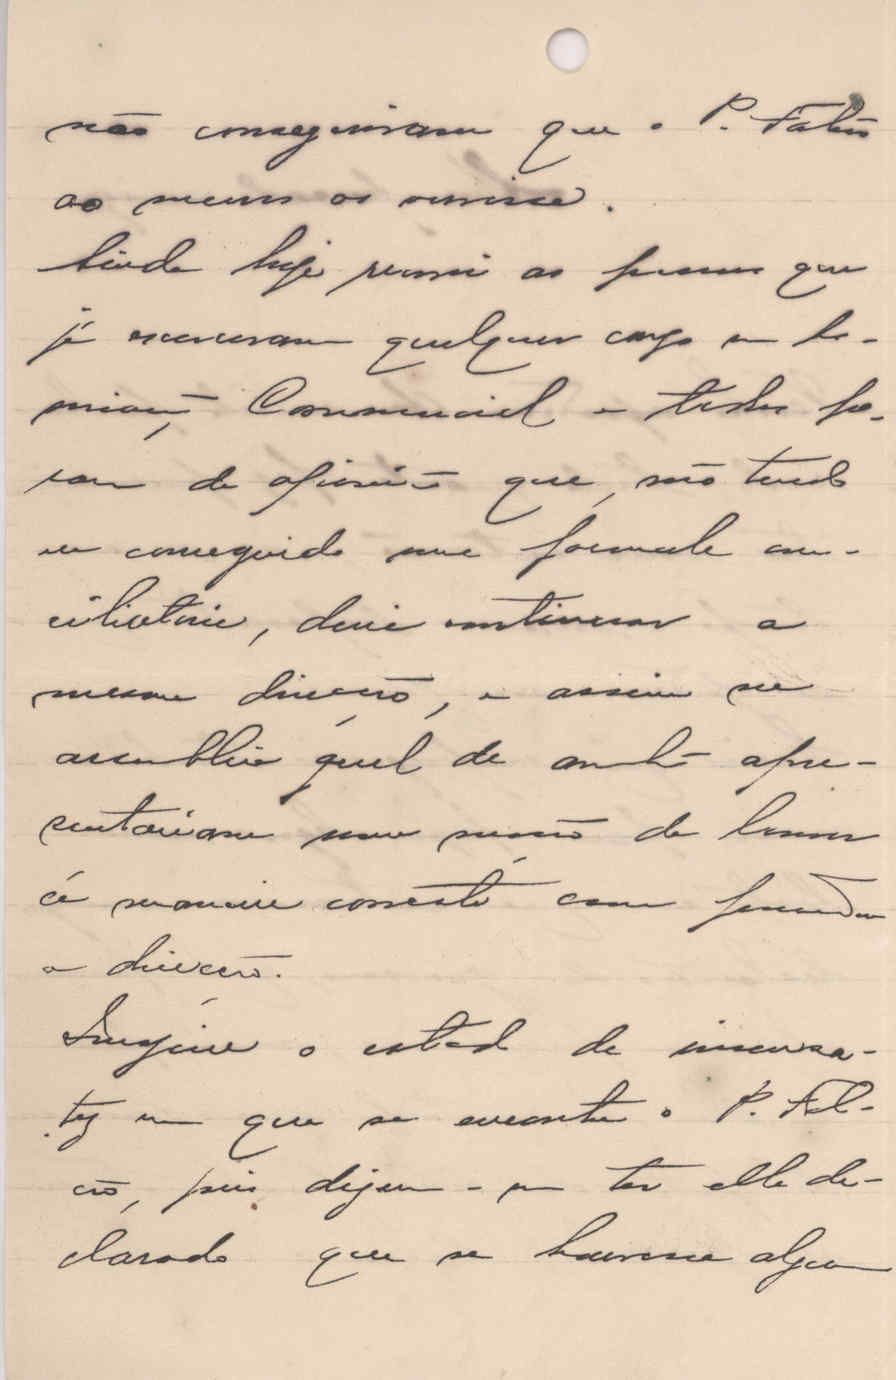 não conseguiram que o P. Falcão
ao menos os ouvisse.
Ainda hoje reuni as pessoas que
já exerceram qualquer cargo na As-
sociação Commercial e todos fo-
ram de opinião que, não tendo
eu conseguido uma formula con-
ciliatoria, devia continuar a
mesma direcção, e assim na
assemblêa geral de amanhã apre-
sentariam uma moção de louvor
á maneira correcta como procedeu
a direcção.
Imagine o estado de insensa-
tez em que se encontra o P. Fal-
cão, pois dizem-me ter elle de-
clarado que se houvesse algum